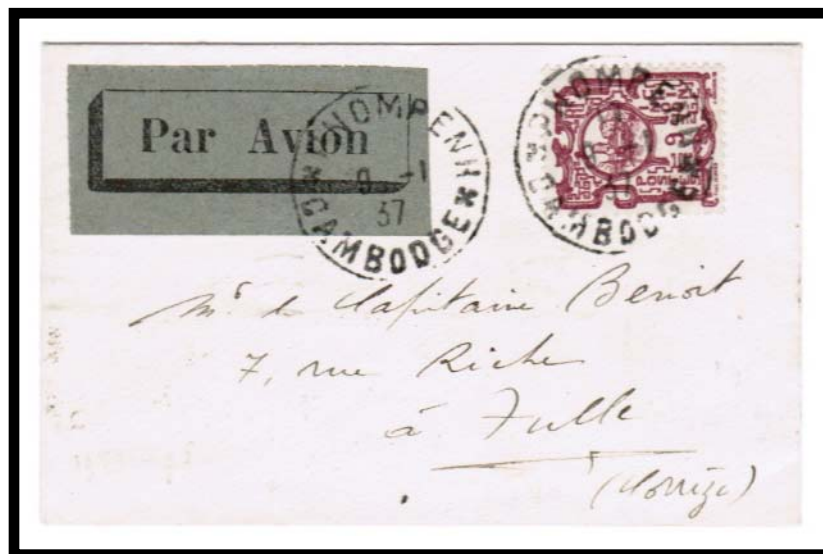 Par Avion
PNOMPENH
9 -1
37
CAMBODGE
PNOMPENH
37
CAMBODGE
Mr le Capitaine Benoit
7, rue Riche
à Tulle
(Corrèze)